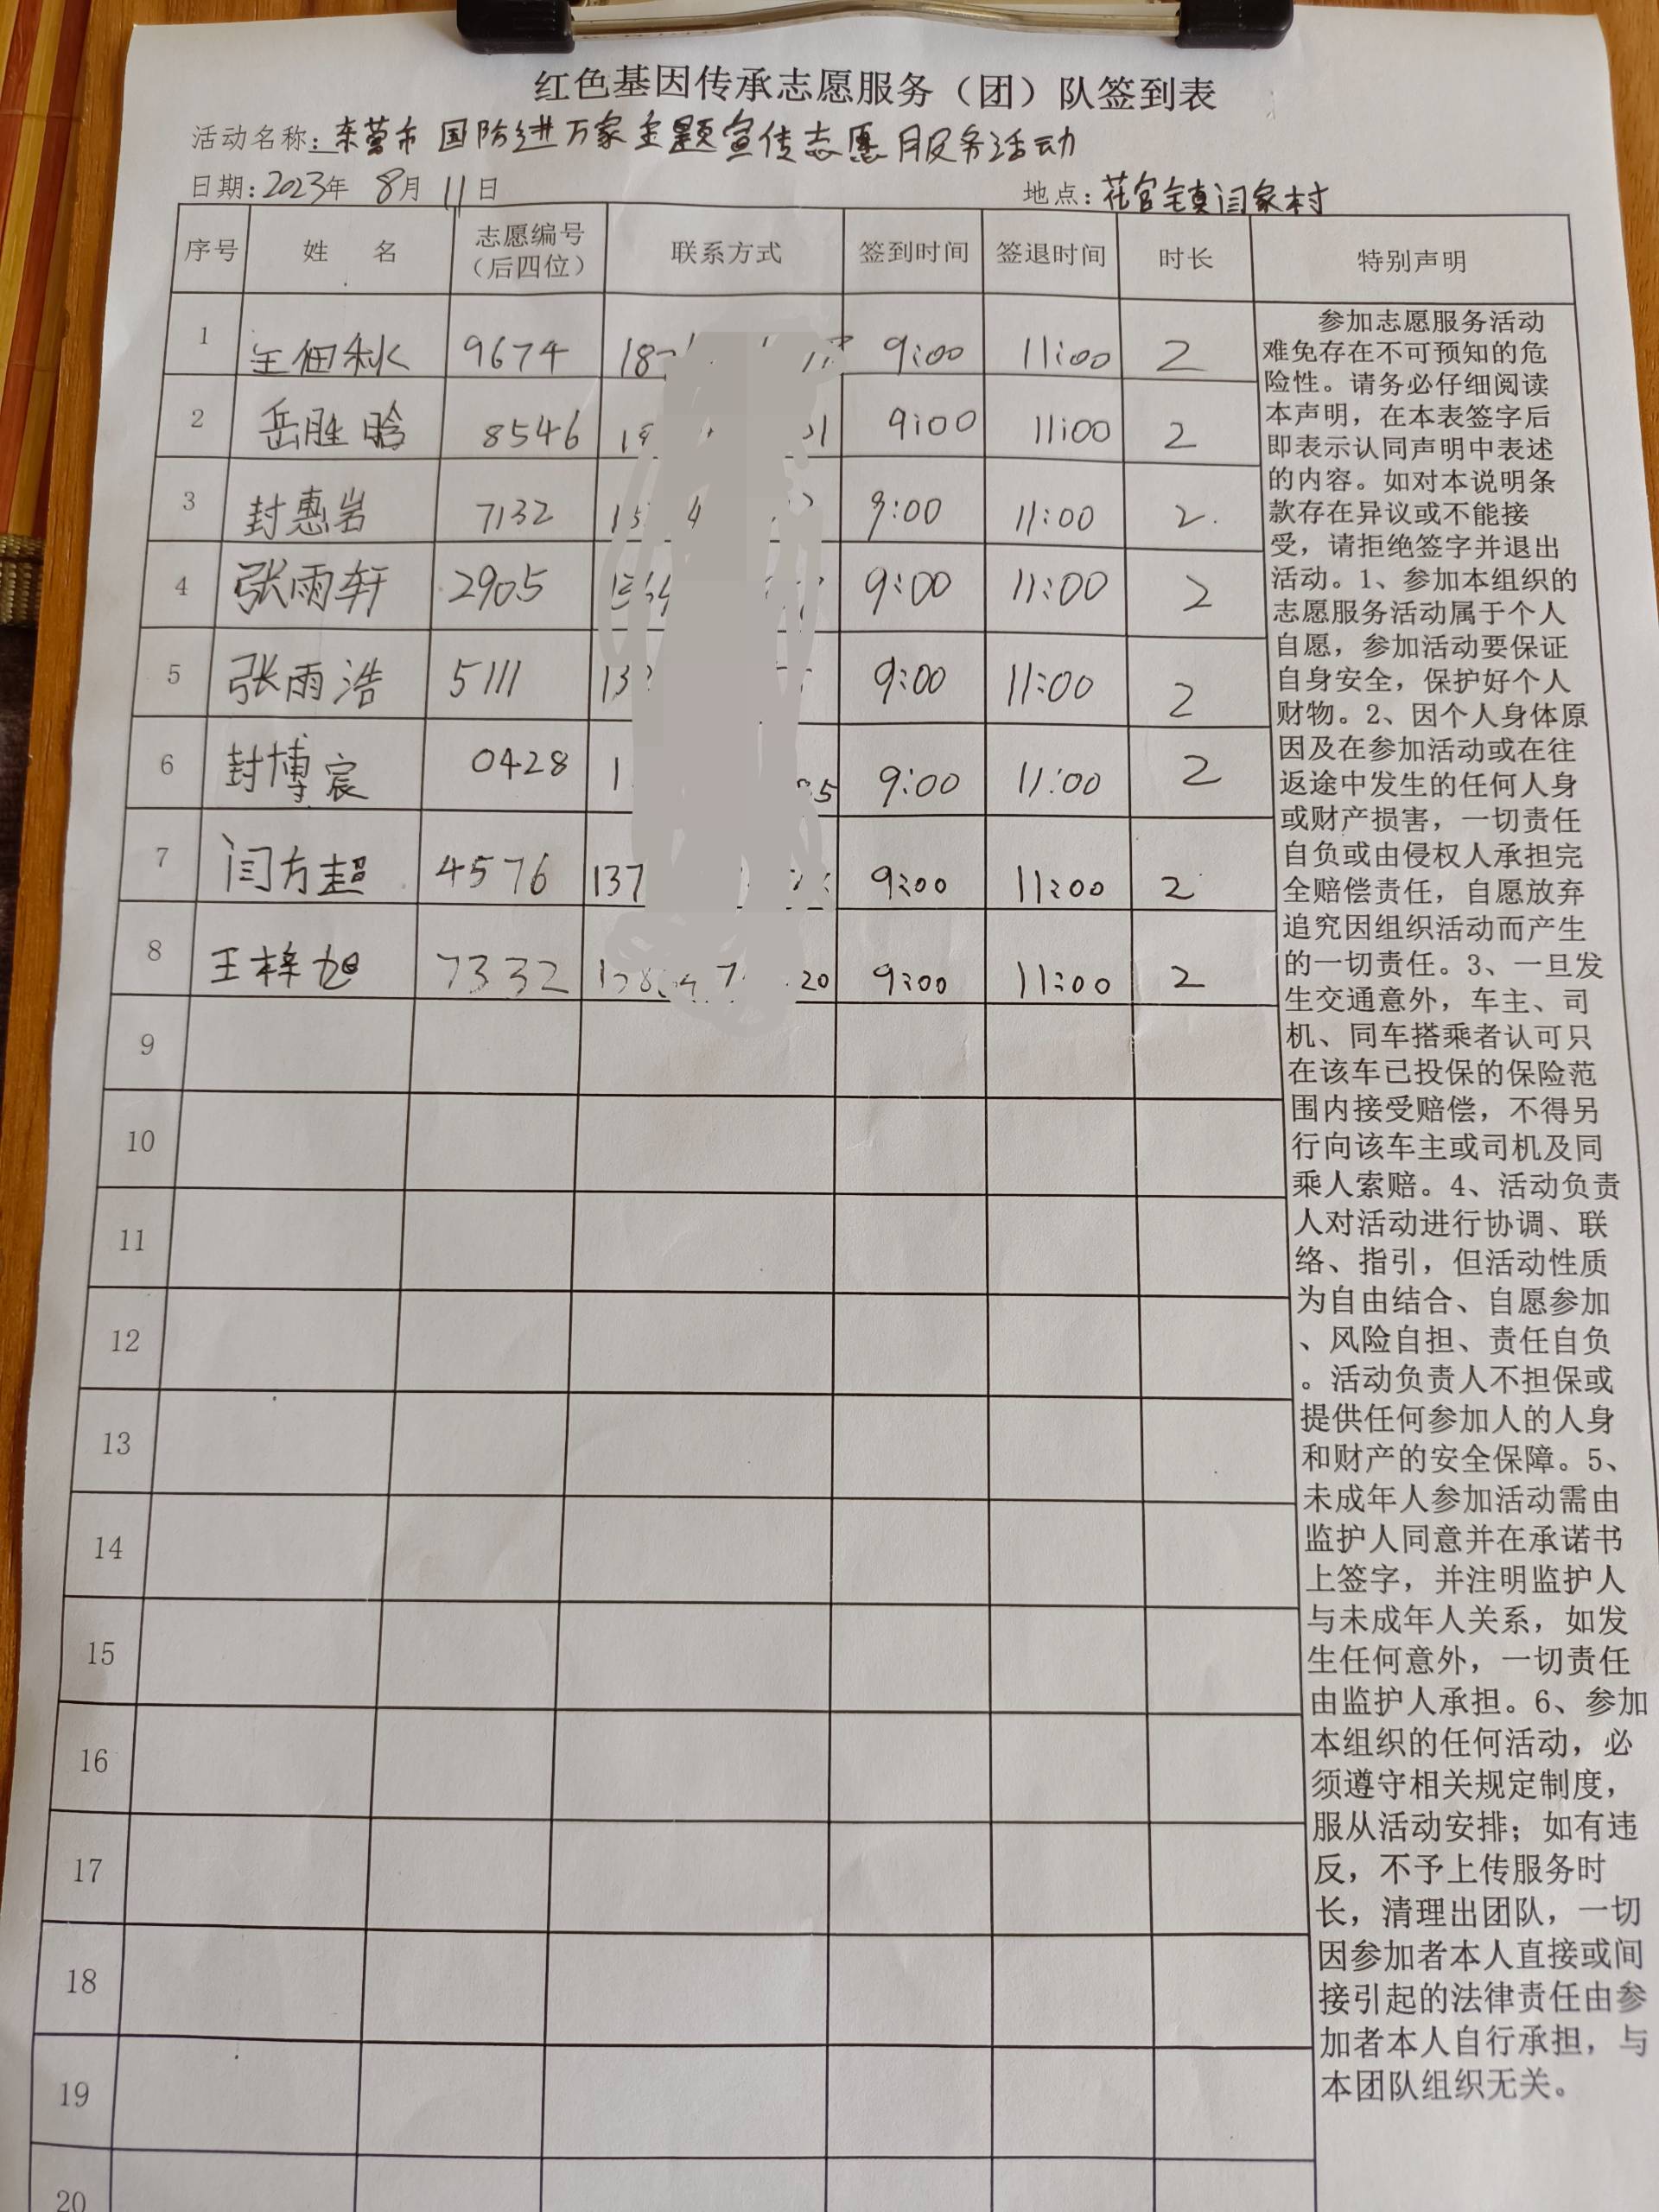 红色基因传承志愿服务（团）队签到表
活动名称：东营市 国防进万家主题宣传志愿服务活动
日期：2023年 8月 11日 地点：花官镇闫家村
序号 姓 名 志愿编号（后四位） 联系方式 签到时间 签退时间 时长 特别声明
1 王佃秋 9674 18 9:00 11:00 2
2 岳胜晗 8546 1 01 9:00 11:00 2
3 封惠岩 7132 15 4 9:00 11:00 2
4 张雨轩 2905 9:00 11:00 2
5 张雨浩 5111 13 9:00 11:00 2
6 封博宸 0428 1 5 9:00 11:00 2
7 闫方超 4576 137 9:00 11:00 2
8 王梓旭 7332 7 20 9:00 11:00 2
9
10
11
12
13
14
15
16
17
18
19
20
参加志愿服务活动
难免存在不可预知的危
险性。请务必仔细阅读
本声明，在本表签字后
即表示认同声明中表述
的内容。如对本说明条
款存在异议或不能接
受，请拒绝签字并退出
活动。1、参加本组织的
志愿服务活动属于个人
自愿，参加活动要保证
自身安全，保护好个人
财物。2、因个人身体原
因及在参加活动或在往
返途中发生的任何人身
或财产损害，一切责任
自负或由侵权人承担完
全赔偿责任，自愿放弃
追究因组织活动而产生
的一切责任。3、一旦发
生交通意外，车主、司
机、同车搭乘者认可只
在该车已投保的保险范
围内接受赔偿，不得另
行向该车主或司机及同
乘人索赔。4、活动负责
人对活动进行协调、联
络、指引，但活动性质
为自由结合、自愿参加
、风险自担、责任自负
。活动负责人不担保或
提供任何参加人的人身
和财产的安全保障。5、
未成年人参加活动需由
监护人同意并在承诺书
上签字，并注明监护人
与未成年人关系，如发
生任何意外，一切责任
由监护人承担。6、参加
本组织的任何活动，必
须遵守相关规定制度，
服从活动安排；如有违
反，不予上传服务时
长，清理出团队，一切
因参加者本人直接或间
接引起的法律责任由参
加者本人自行承担，与
本团队组织无关。